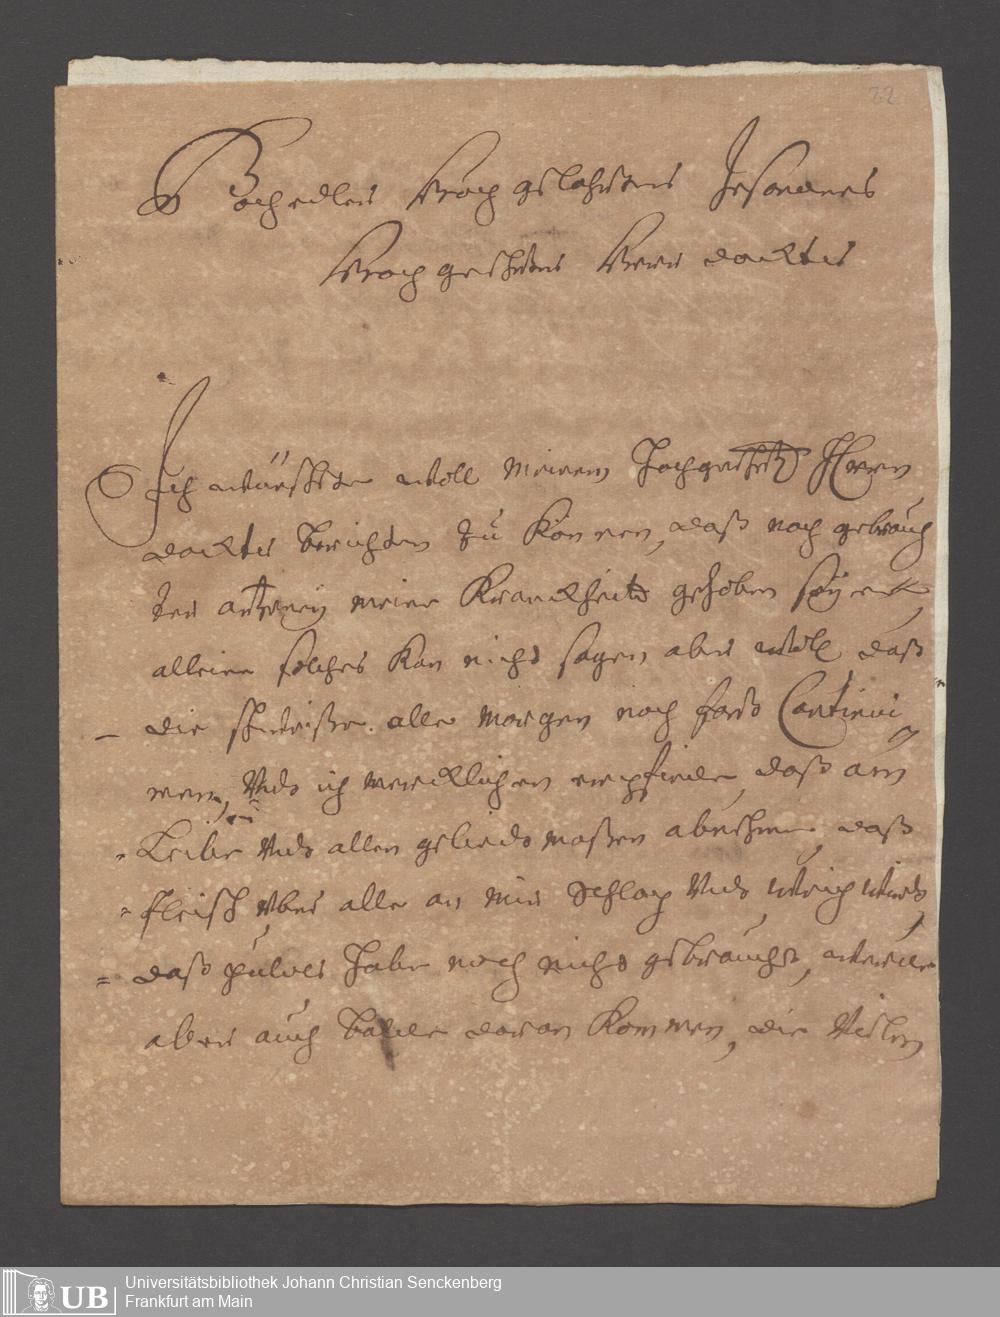 22
Hochedler Hoch gelahrter Insonders
Hoch geehrter Herr docktter
Ich wünschte woll meinem Hochgeehrt Herrn
docktter berichten zu können, daß nach gebrauch
der artzney meine Kranckheit gehoben sey
alleine solches kan nicht sagen aber woll daß
die schweiße alle morgen noch fort Continui
ren, Und ich mercklichen empfinde, daß am
Leibe Und allen gelieder maßen abnehme, daß
fleisch über alle an mir schlap Und weich wird,
daß pulver habe noch nicht gebraucht, werde
aber auch balde daran kommen, die vielen
UB
Universitätsbibliothek Johann Christian Senckenberg
Frankfurt am Main